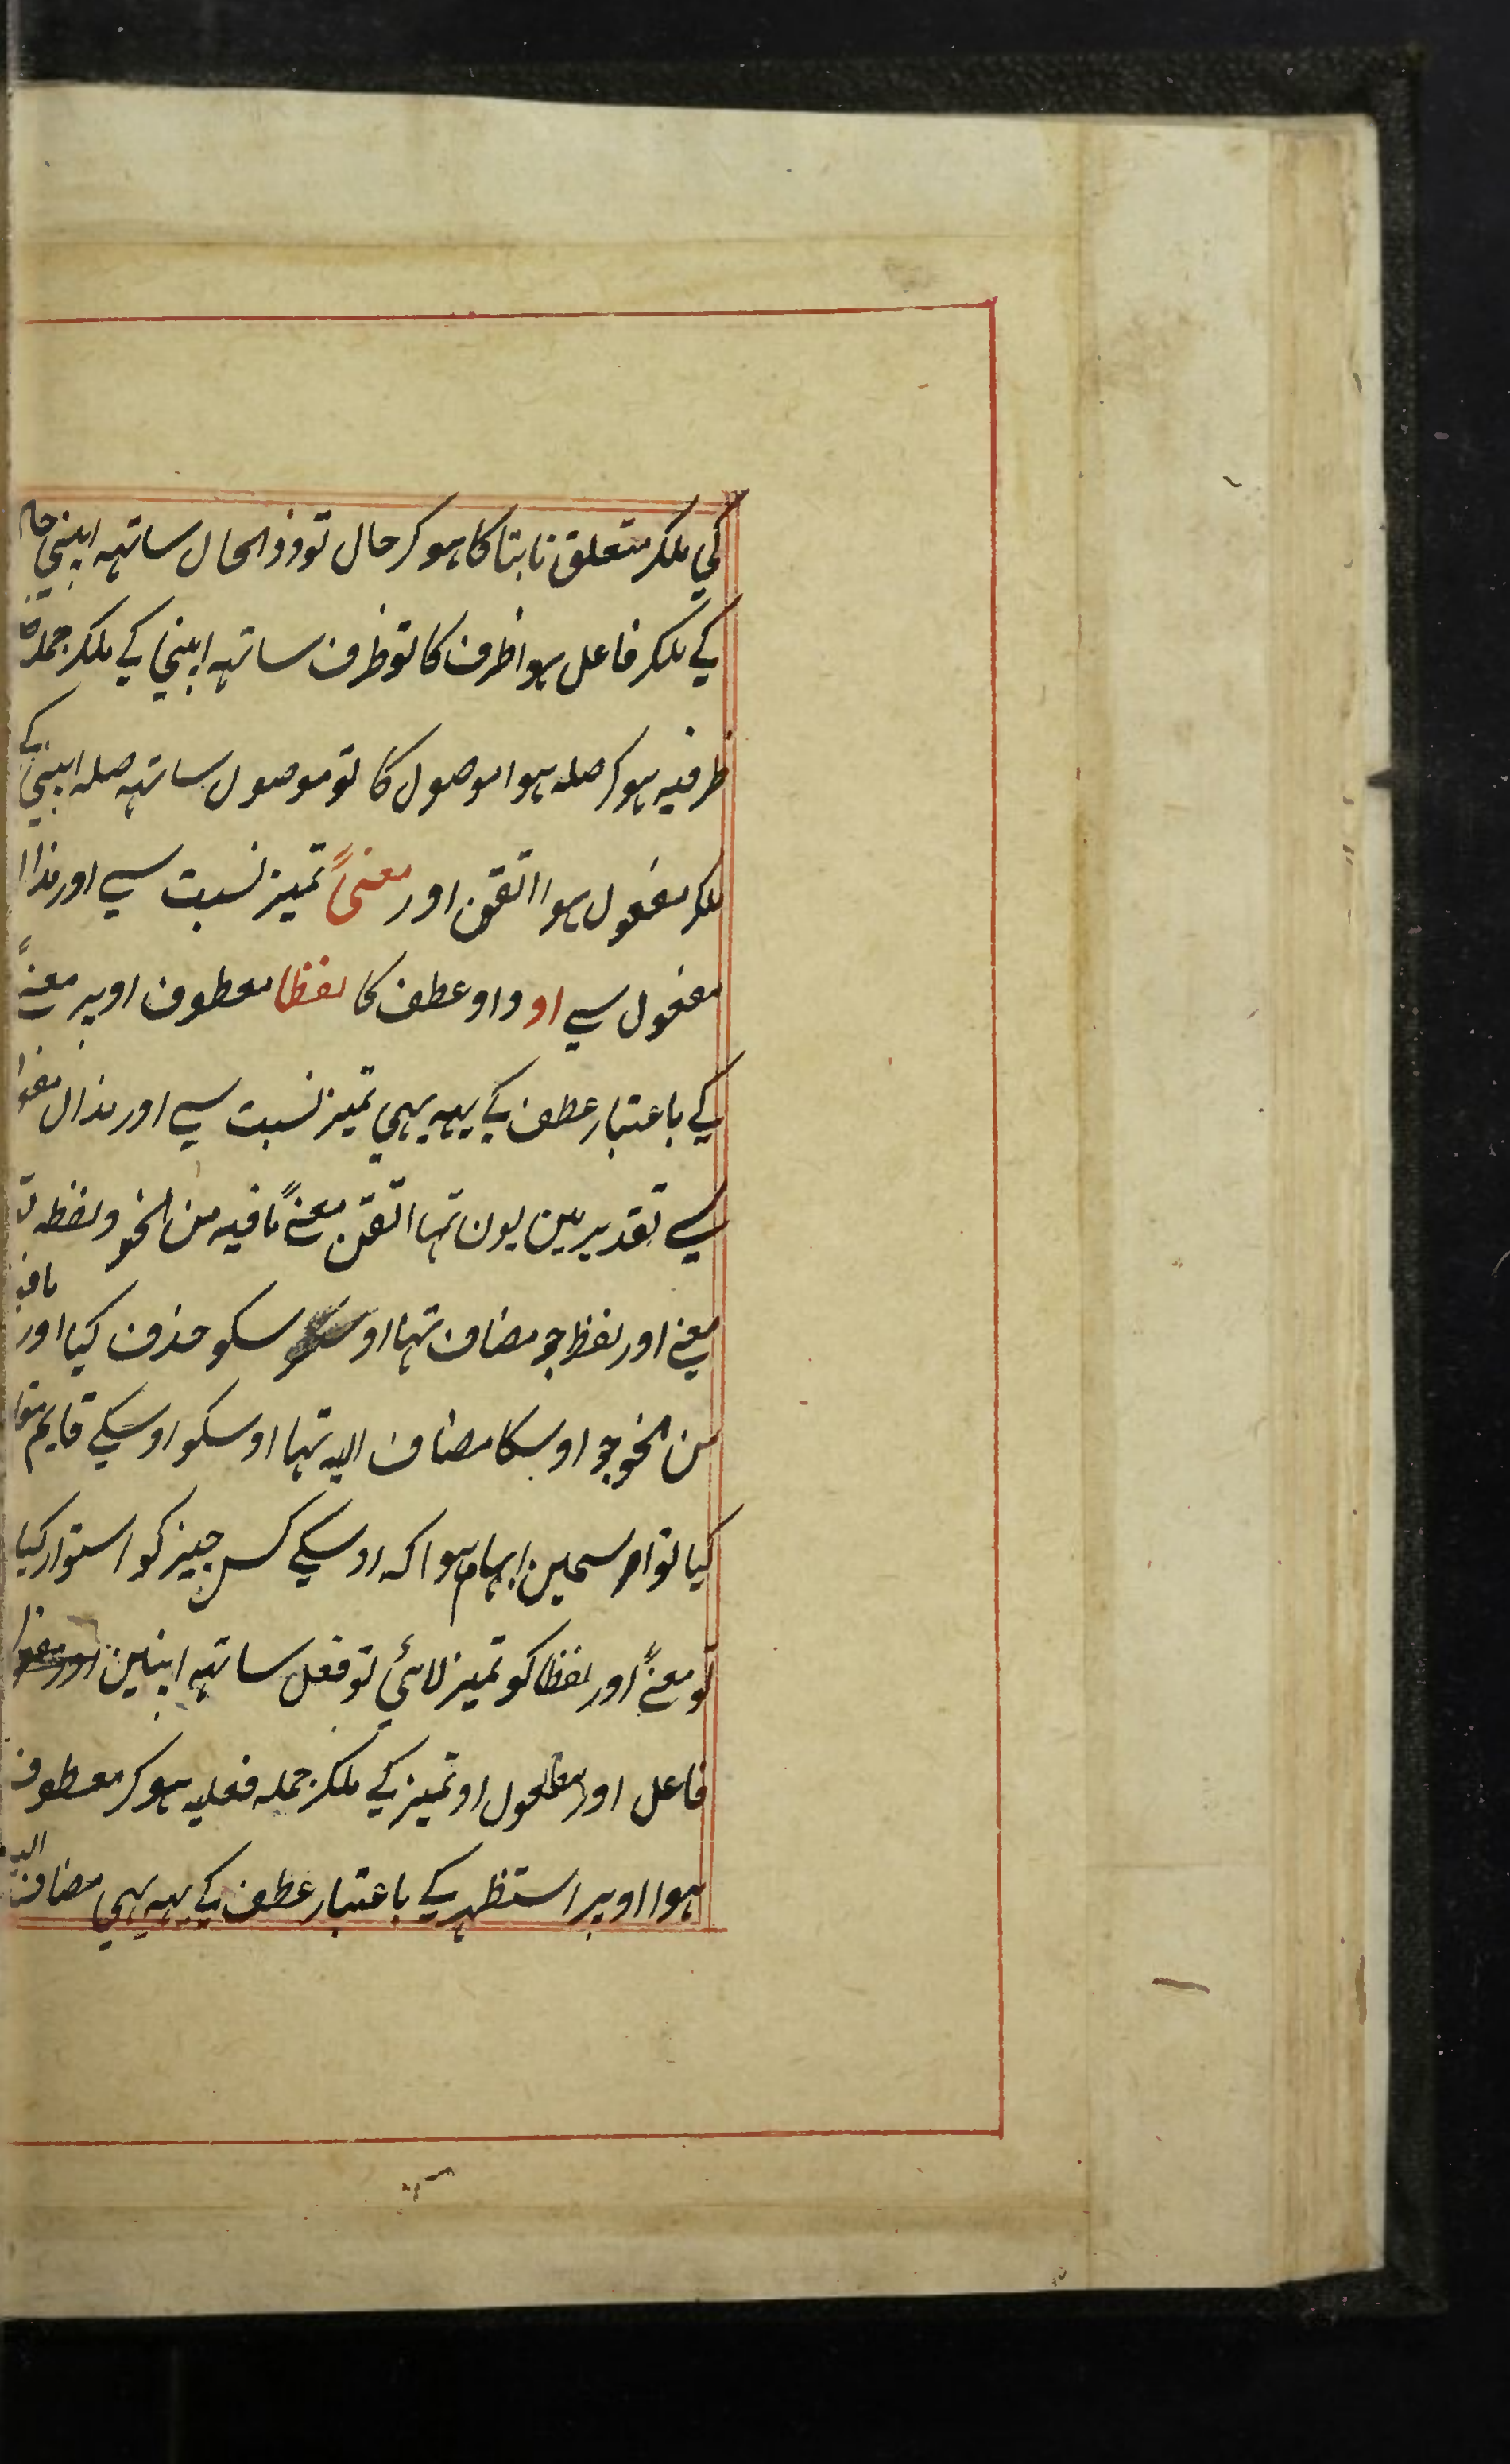 کی ملکر متعلق ثابتا کا ہوکر حال تو ذوالحال ساتہہ اپنی حال
کے ملکر فاعل ہوا ظرف کا تو ظرف ساتہہ اپنی کے ملکر جملہ
ظرفیہ ہوکر صلہ ہوا موصول کا تو موصول ساتہہ صلہ اپنی کے
ملکر مفعول ہوا اتقن اور معنیً تمیز نسبت سے اور
مفعول سے او واو عطف کا لفظا معطوف اوپر معنےً
کے باعتبار عطف کے یہہ بہی تمیز نسبت سے اور
سے تقدیر مین یون تہا اتقن معنےً مافیہ من النحو ولفظہ تو
معنے اور لفظ جو مضاف تہا او سکو حذف کیا اور مافیہ
من النحو جو اوسکا مضاف الیہ تہا اوسکو اوسکے قایم مقام
کیا تو اوسمین ابہام ہوا کہ اوسکے کس چیز کو استوار کیا
تو معنےً اور لفظا کو تمیز لائی تو فعل ساتہہ اپنین
فاعل اور مفعول او تمیز کے ملکر جملہ فعلیہ ہوکر معطوف
ہوا اوپر استظہر کے باعتبار عطف کے یہہ بہی مضاف الیہ